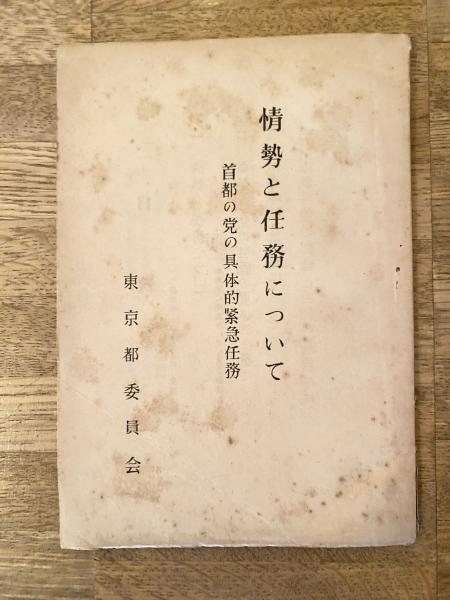 情勢と任務について
首都の党の具体的緊急任務
東京都委員会